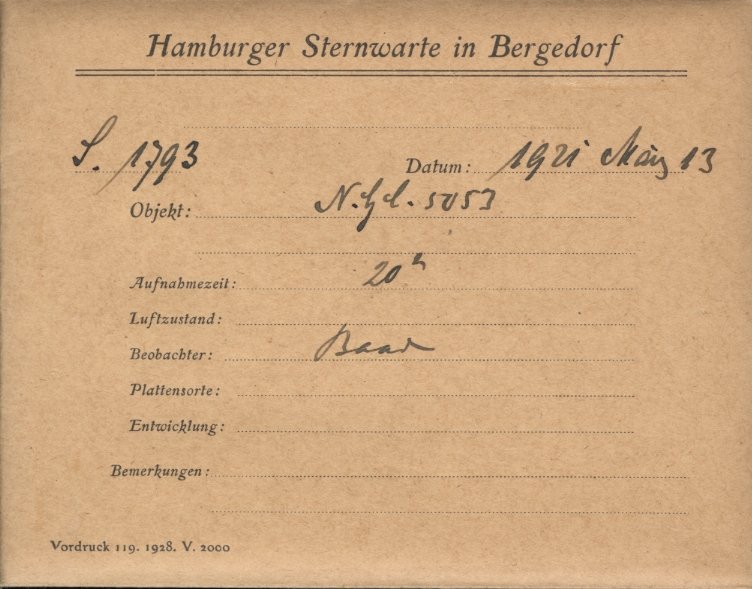 Hamburger Sternwarte in Bergedorf
S. 1793
Datum: 1921 März 13
Objekt: N.G.C. 5053
Aufnahmezeit: 20h
Luftzustand:
Beobachter: Baade
Plattensorte:
Entwicklung:
Bemerkungen:
Vordruck 119. 1928. V. 2000